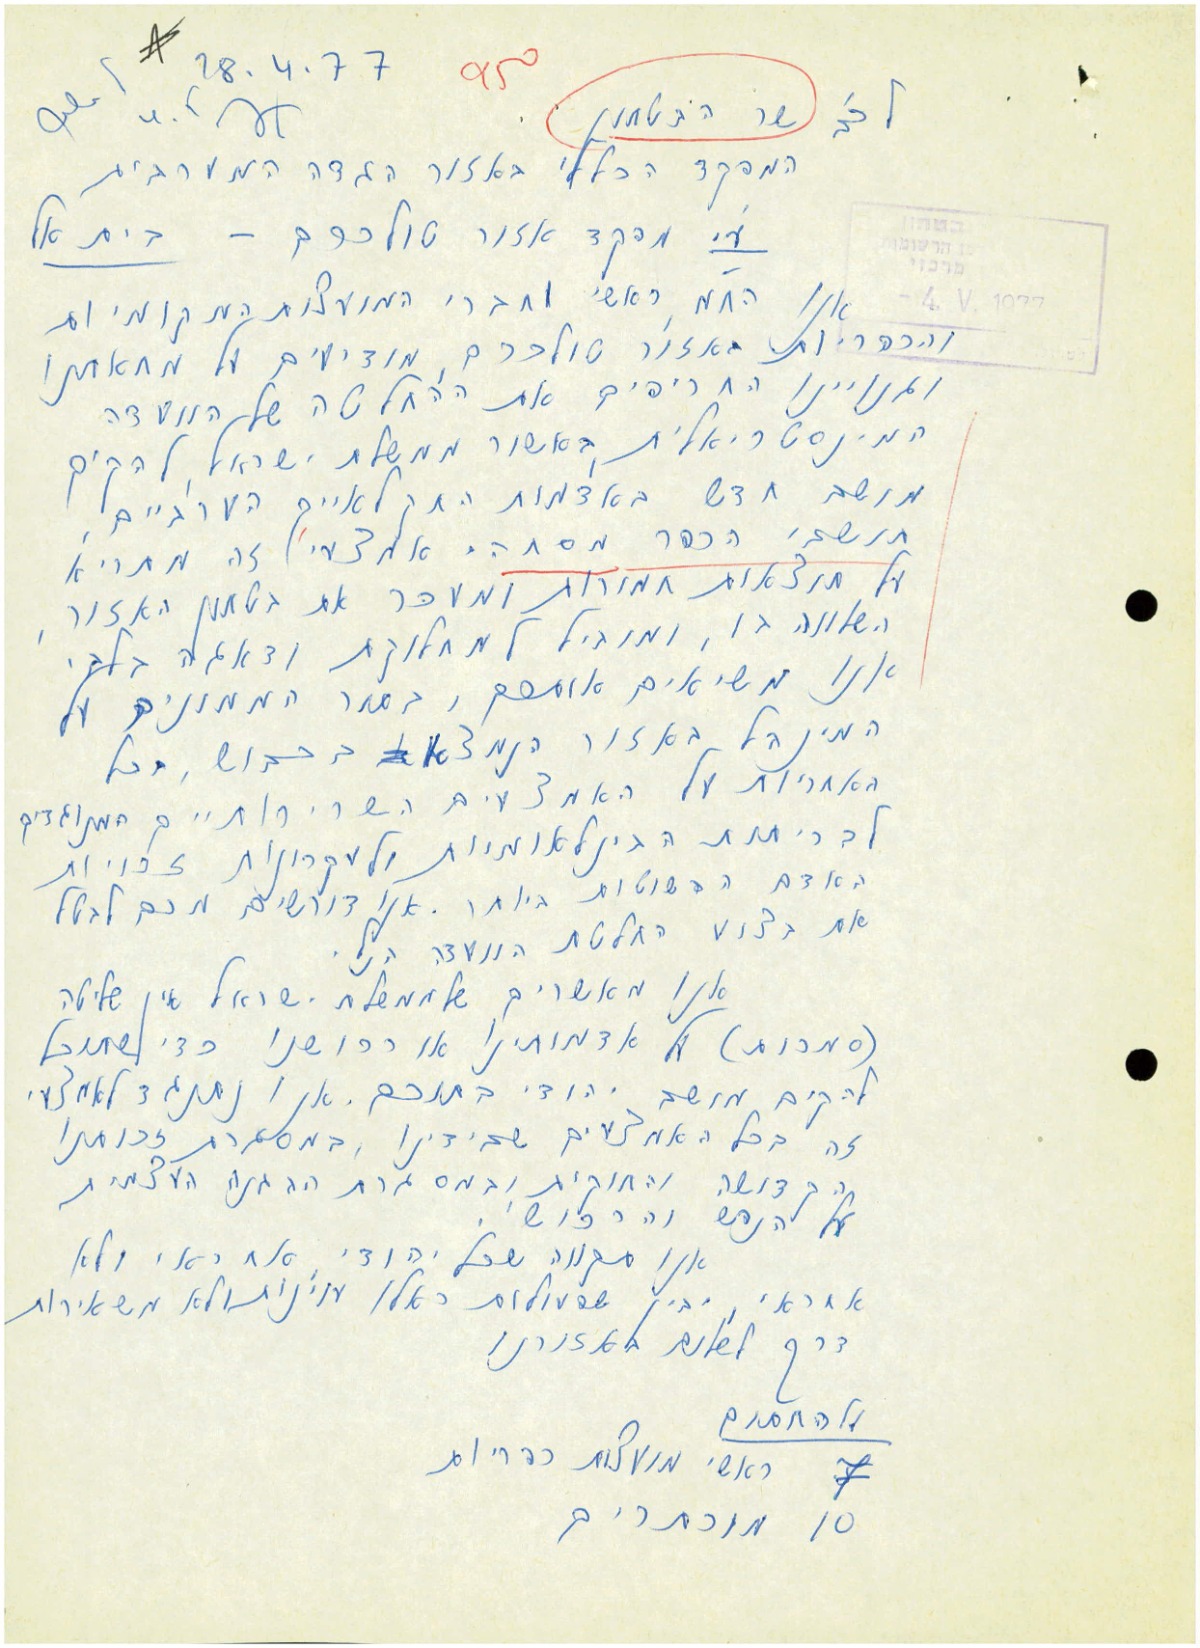 28.4.77
לכב' שר הבטחון
המפקד הכללי באזור הגדה המערבית
ע"י מפקד אזור טולכרם – בית אל
בטחון
מרכזי
- 4. V. 1977
אנו הח"מ ראשי וחברי המועצות המקומיות
והכפריות באזור טולכרם, מודיעים על מחאתנו
וגנויינו החריפים את ההחלטה של הוועדה
המינסטריאלית, באשור ממשלת ישראל, להקים
מושב חדש באדמות החקלאיים הערביים,
תושבי הכפר מסחה. אמצעי זה מתריא
על תוצאות חמורות ומעכר את בטחון האזור,
השלווה בו, ומוביל למחלוקת ודאגה בלבי.
אנו משיאים אותכם, בתור הממונים על
המינהל באזור הנמצא בכבוש, בכל
האחריות על האמצעים השרירותיים המנוגדים
לבריתות הבינלאומיות ולעקרונות זכויות
האדם הפשוטות ביותר. אנו דורשים מכם לבטל
את בצוע החלטת הוועדה הנ"ל.
אנו מאשרים שלממשלת ישראל אין שליטה
(סמכות) על אדמותינו או רכושנו כדי שתוכל
להקים מושב יהודי בתוכם. אנו נתנגד לאמצעי
זה בכל האמצעים שבידינו, במסגרת זכותנו
הקדושה והחוקית ובמסגרת ההגנה העצמית
על הנפש והרכוש.
אנו תקווה שכל יהודי, אחראי ולא
אחראי, יבין שפעולות כאלו עוינות ולא משאירות
דרך לשלום באזורנו
על החתום
7 ראשי מועצות כפריות
10 מוכתרים